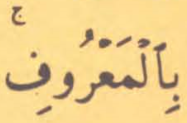 بِٱلْمَعْرُوفِۚ